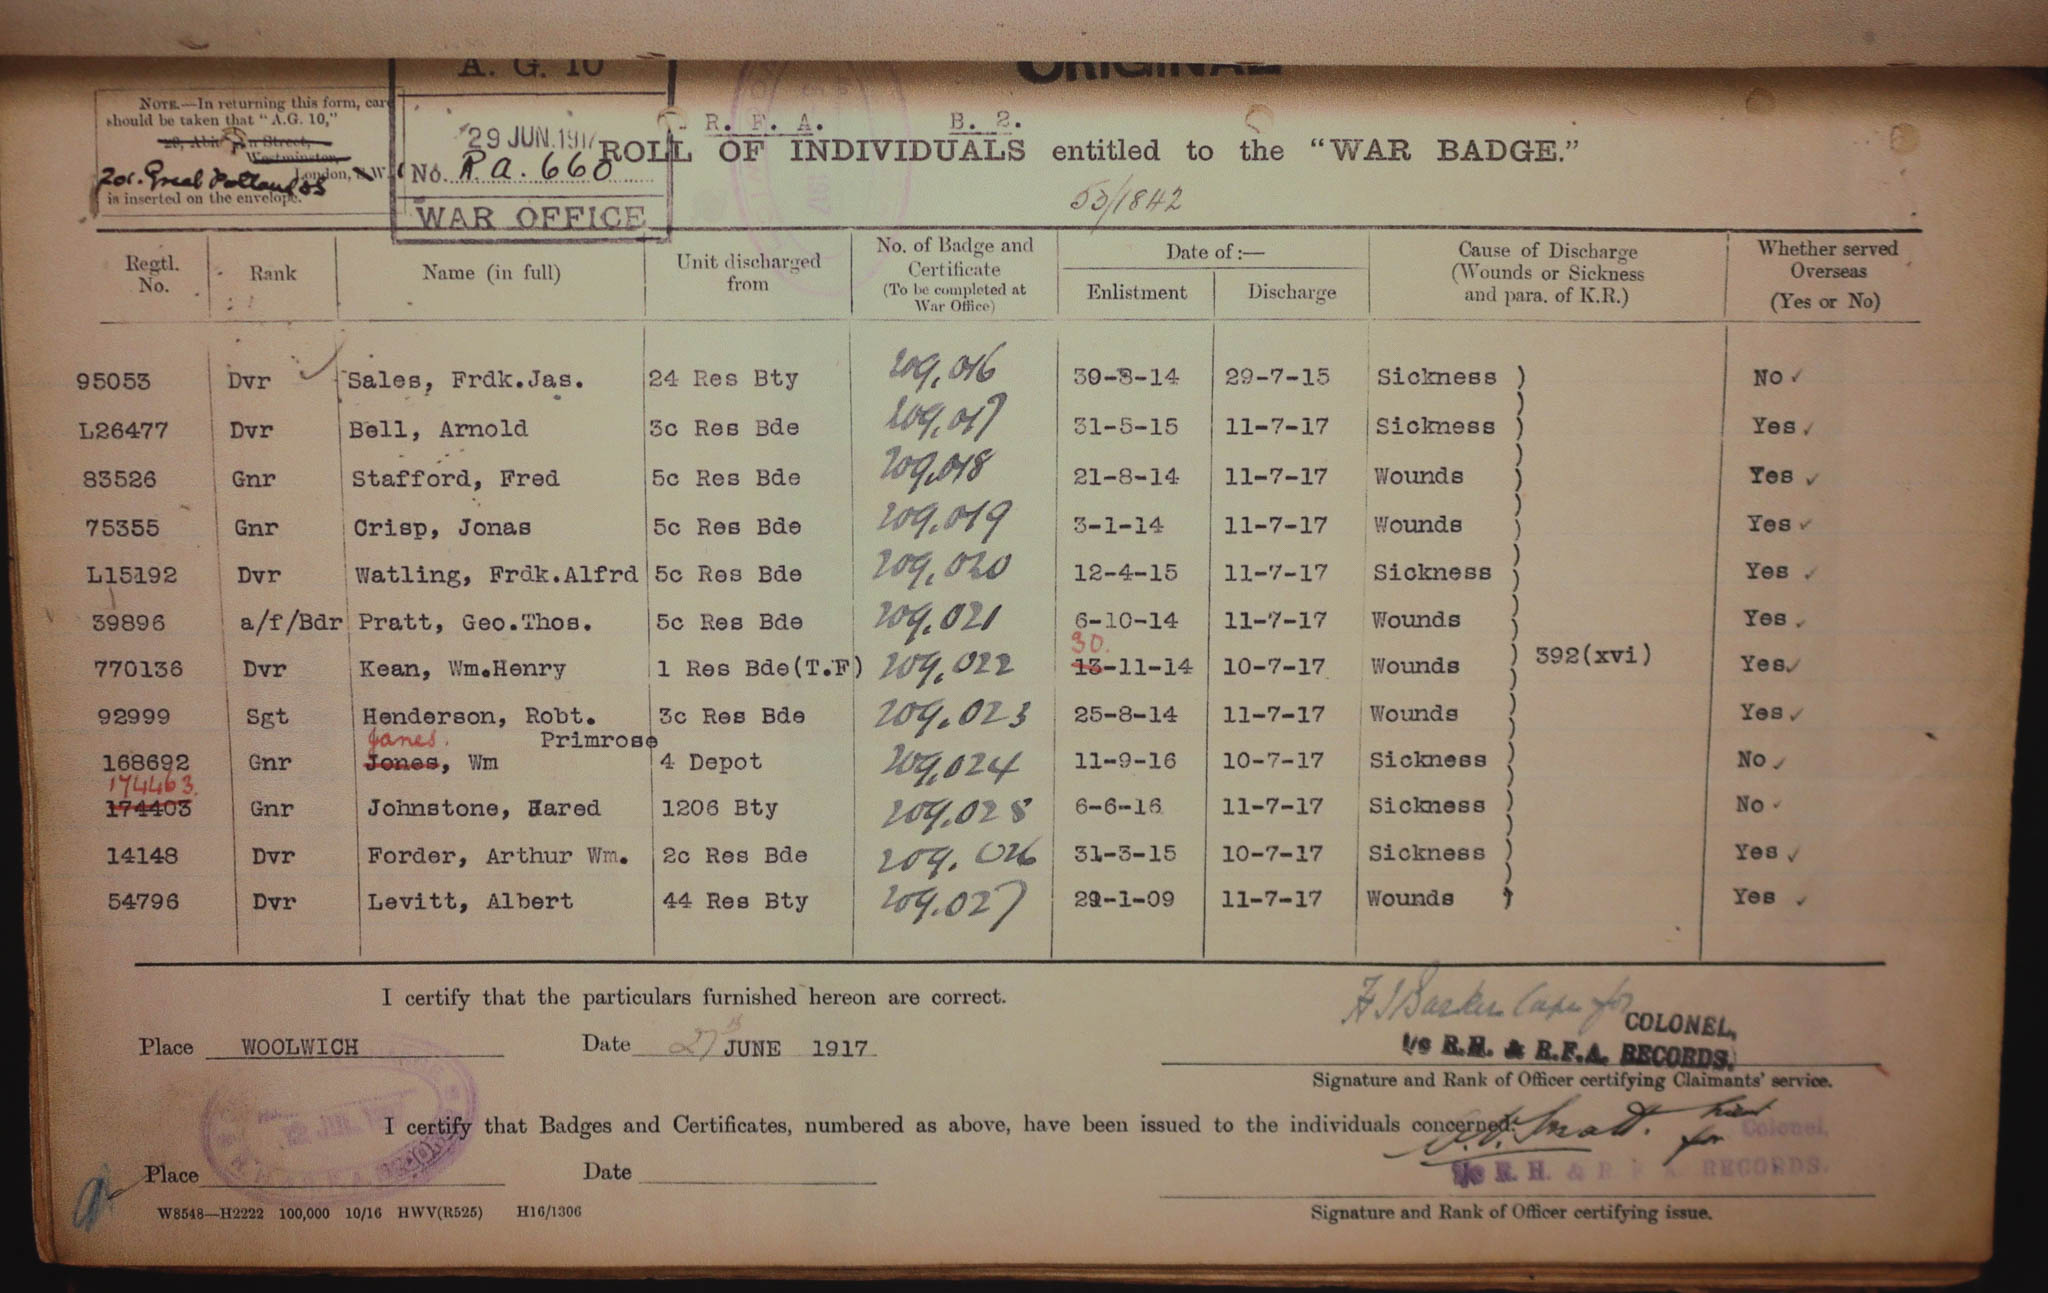 A. G. 10
ORIGINAL
NOTE.—In returning this form, care
should be taken that "A.G. 10,"
Street,
Westminster,
London, S.W.
is inserted on the envelope.
29 JUN. 1917
No. R.A. 660
WAR OFFICE
R. F. A. B. 2.
ROLL OF INDIVIDUALS entitled to the "WAR BADGE."
53/1842
Regtl. No. | Rank | Name (in full) | Unit discharged from | No. of Badge and Certificate (To be completed at War Office) | Date of :— Enlistment | Discharge | Cause of Discharge (Wounds or Sickness and para. of K.R.) | Whether served Overseas (Yes or No)
95053 Dvr Sales, Frdk.Jas. 24 Res Bty 209,016 30-8-14 29-7-15 Sickness ) No ✓
L26477 Dvr Bell, Arnold 3c Res Bde 209,017 31-5-15 11-7-17 Sickness ) Yes ✓
83526 Gnr Stafford, Fred 5c Res Bde 209,018 21-8-14 11-7-17 Wounds ) Yes ✓
75355 Gnr Crisp, Jonas 5c Res Bde 209,019 3-1-14 11-7-17 Wounds ) Yes ✓
L15192 Dvr Watling, Frdk.Alfrd 5c Res Bde 209,020 12-4-15 11-7-17 Sickness ) Yes ✓
39896 a/f/Bdr Pratt, Geo.Thos. 5c Res Bde 209,021 6-10-14 11-7-17 Wounds ) Yes ✓
30.
770136 Dvr Kean, Wm.Henry 1 Res Bde(T.F) 209,022 13-11-14 10-7-17 Wounds ) 392(xvi) Yes ✓
92999 Sgt Henderson, Robt. 3c Res Bde 209,023 25-8-14 11-7-17 Wounds ) Yes ✓
Janes. Primrose
168692 Gnr Jones, Wm 4 Depot 209,024 11-9-16 10-7-17 Sickness ) No ✓
174463.
174403 Gnr Johnstone, Hared 1206 Bty 209,025 6-6-16 11-7-17 Sickness ) No ✓
14148 Dvr Forder, Arthur Wm. 2c Res Bde 209,026 31-3-15 10-7-17 Sickness ) Yes ✓
54796 Dvr Levitt, Albert 44 Res Bty 209,027 -1-09 11-7-17 Wounds ) Yes ✓
I certify that the particulars furnished hereon are correct.
Place WOOLWICH Date 27th JUNE 1917
for COLONEL,
i/c R.H. & R.F.A. RECORDS.
Signature and Rank of Officer certifying Claimants' service.
I certify that Badges and Certificates, numbered as above, have been issued to the individuals concerned.
for Colonel,
i/c R. H. & R. F. A. RECORDS.
Place Date
Signature and Rank of Officer certifying issue.
W8548—H2222 100,000 10/16 HWV(R525) H16/1306